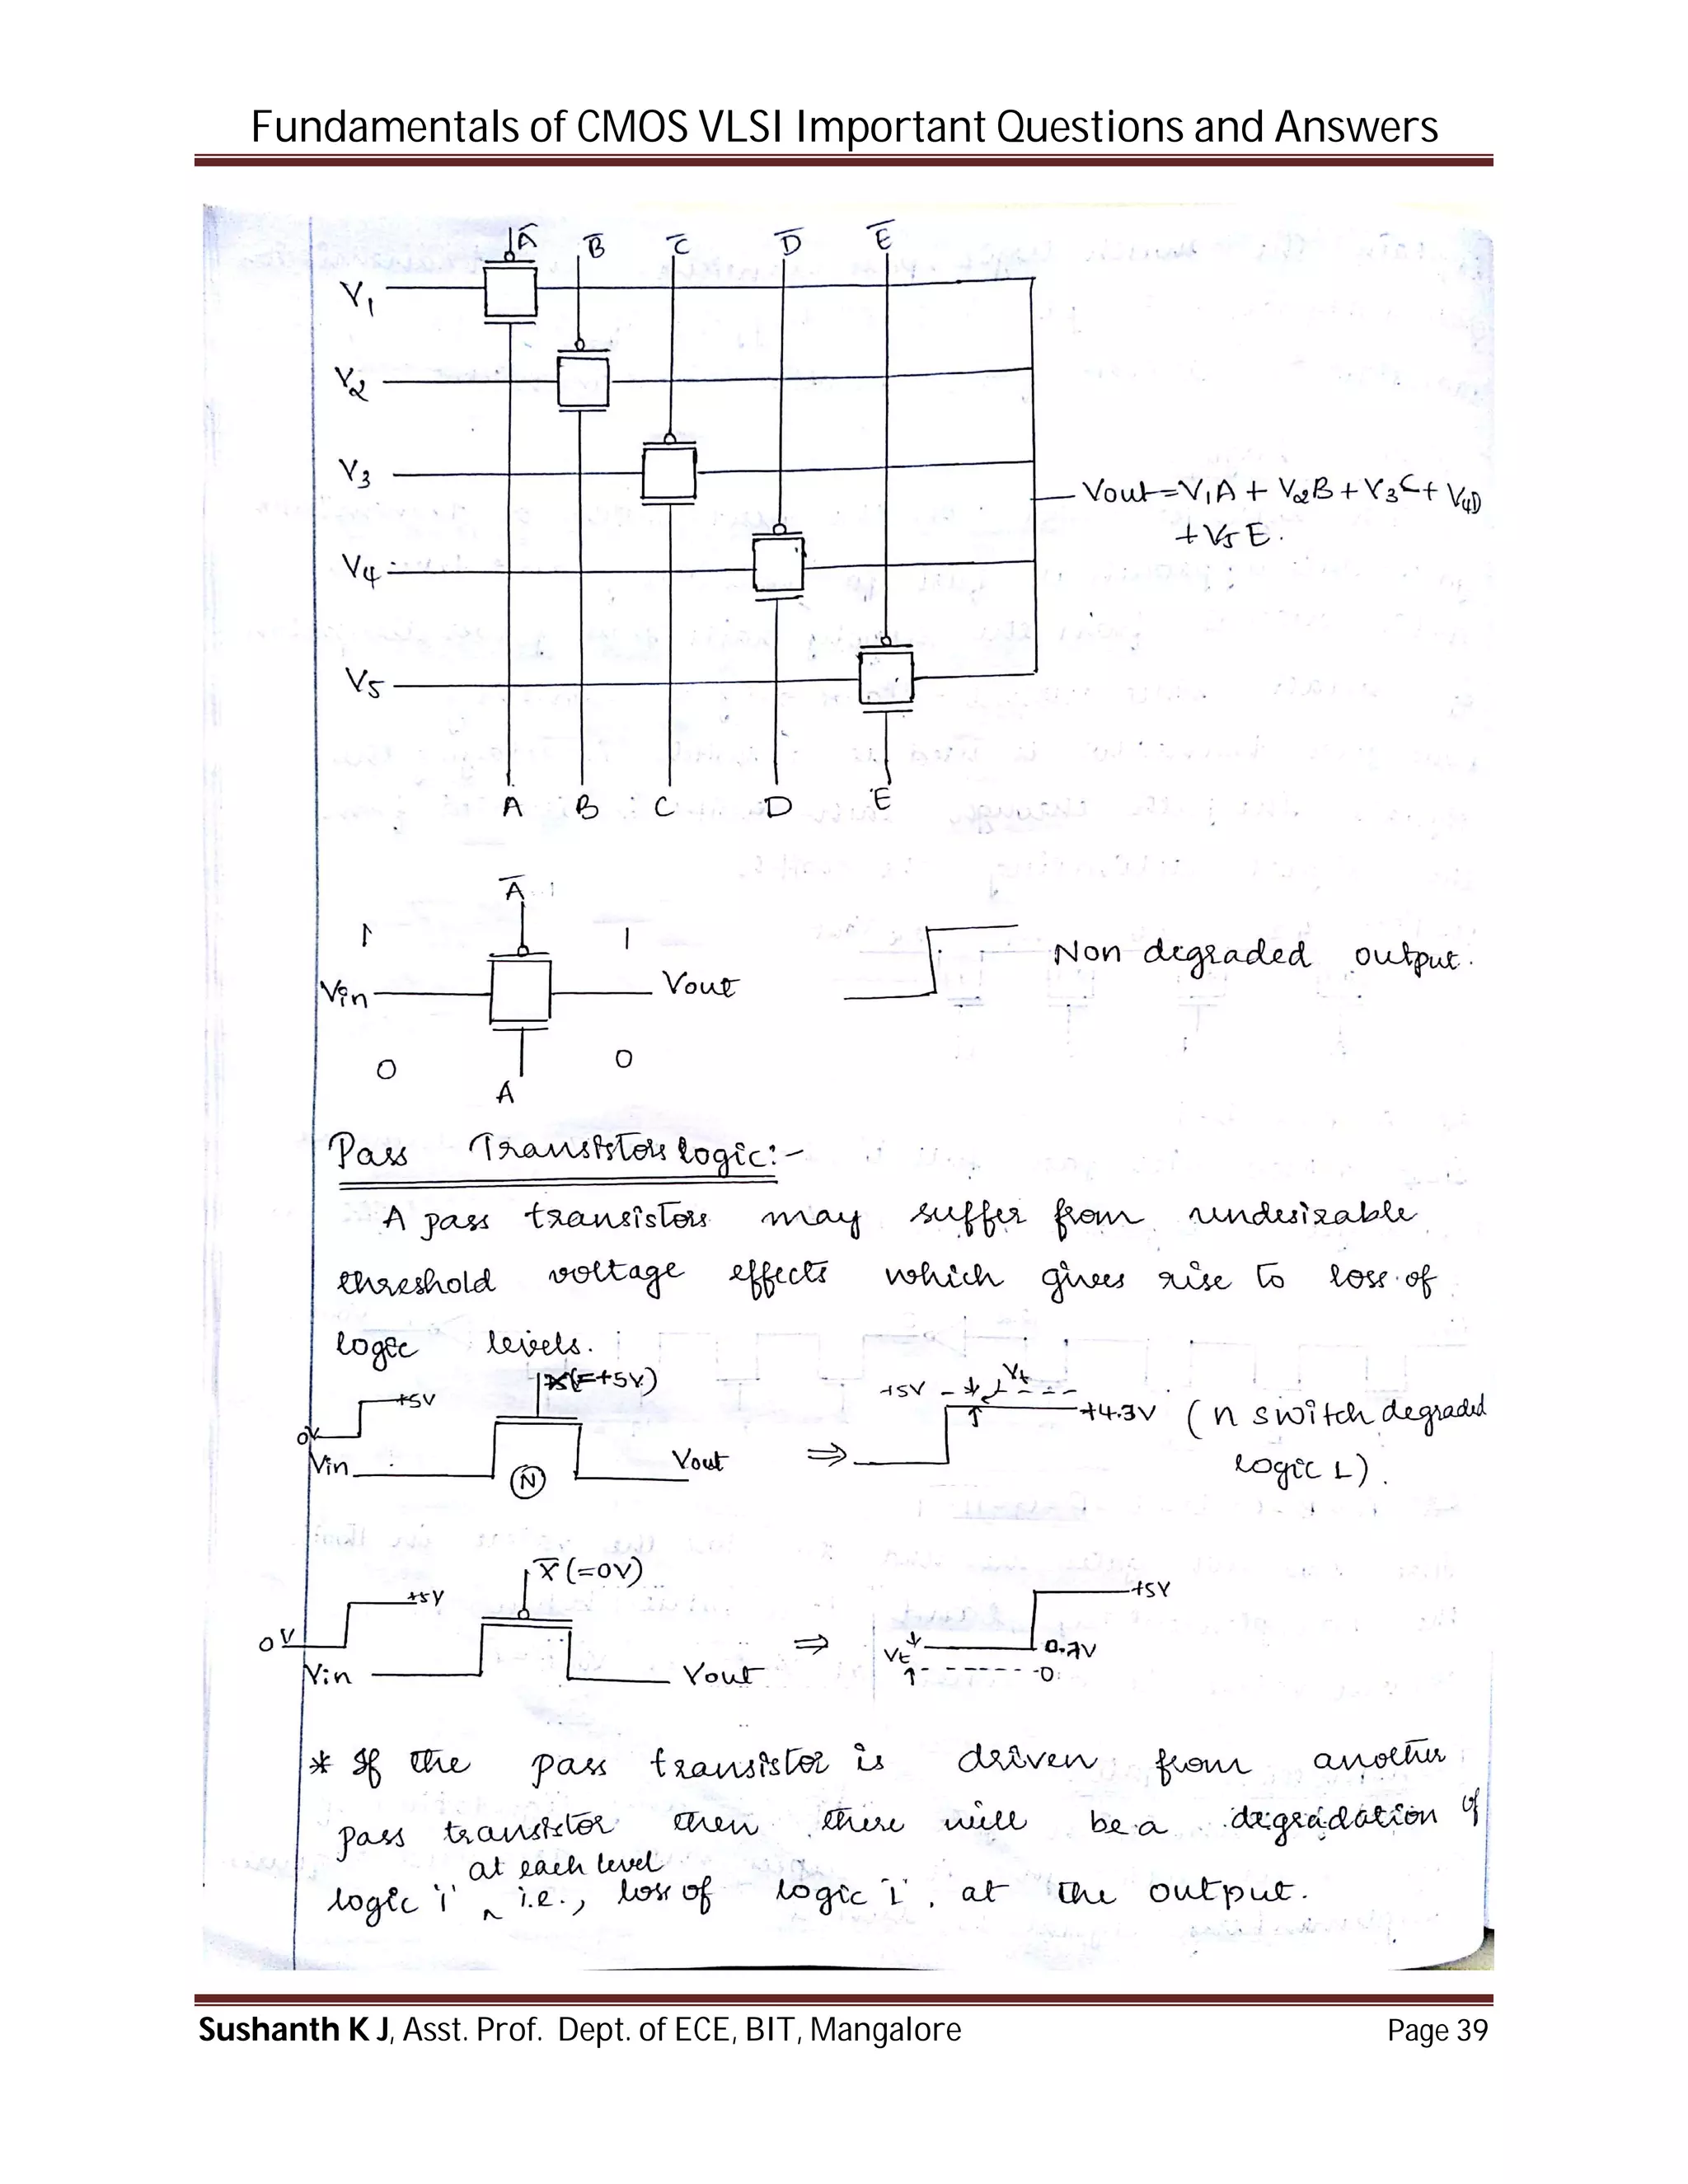 Fundamentals of CMOS VLSI Important Questions and Answers
A̅ B̅ C̅ D̅ E̅
V1
V2
V3
Vout=V1A + V2B + V3C + V4D
+ V5 E.
V4
V5
A B C D E
A̅
1 1
Non degraded output.
Vin Vout
0 0
A
Pass Transistors logic:-
A pass transistors may suffer from undesirable
threshold voltage effects which gives rise to loss of
logic levels.
X(=+5V) +5V Vt
+5V +4.3V (n switch degraded
0V
Vin Vout ⇒ logic 1).
N
X̅ (=0V)
+5V +5V
0V ⇒ Vt 0.7V
Vin Vout 0
* If the pass transistor is driven from another
pass transistor then there will be a degradation of
at each level
logic '1' ^ i.e., loss of logic '1', at the output.
Sushanth K J, Asst. Prof. Dept. of ECE, BIT, Mangalore Page 39